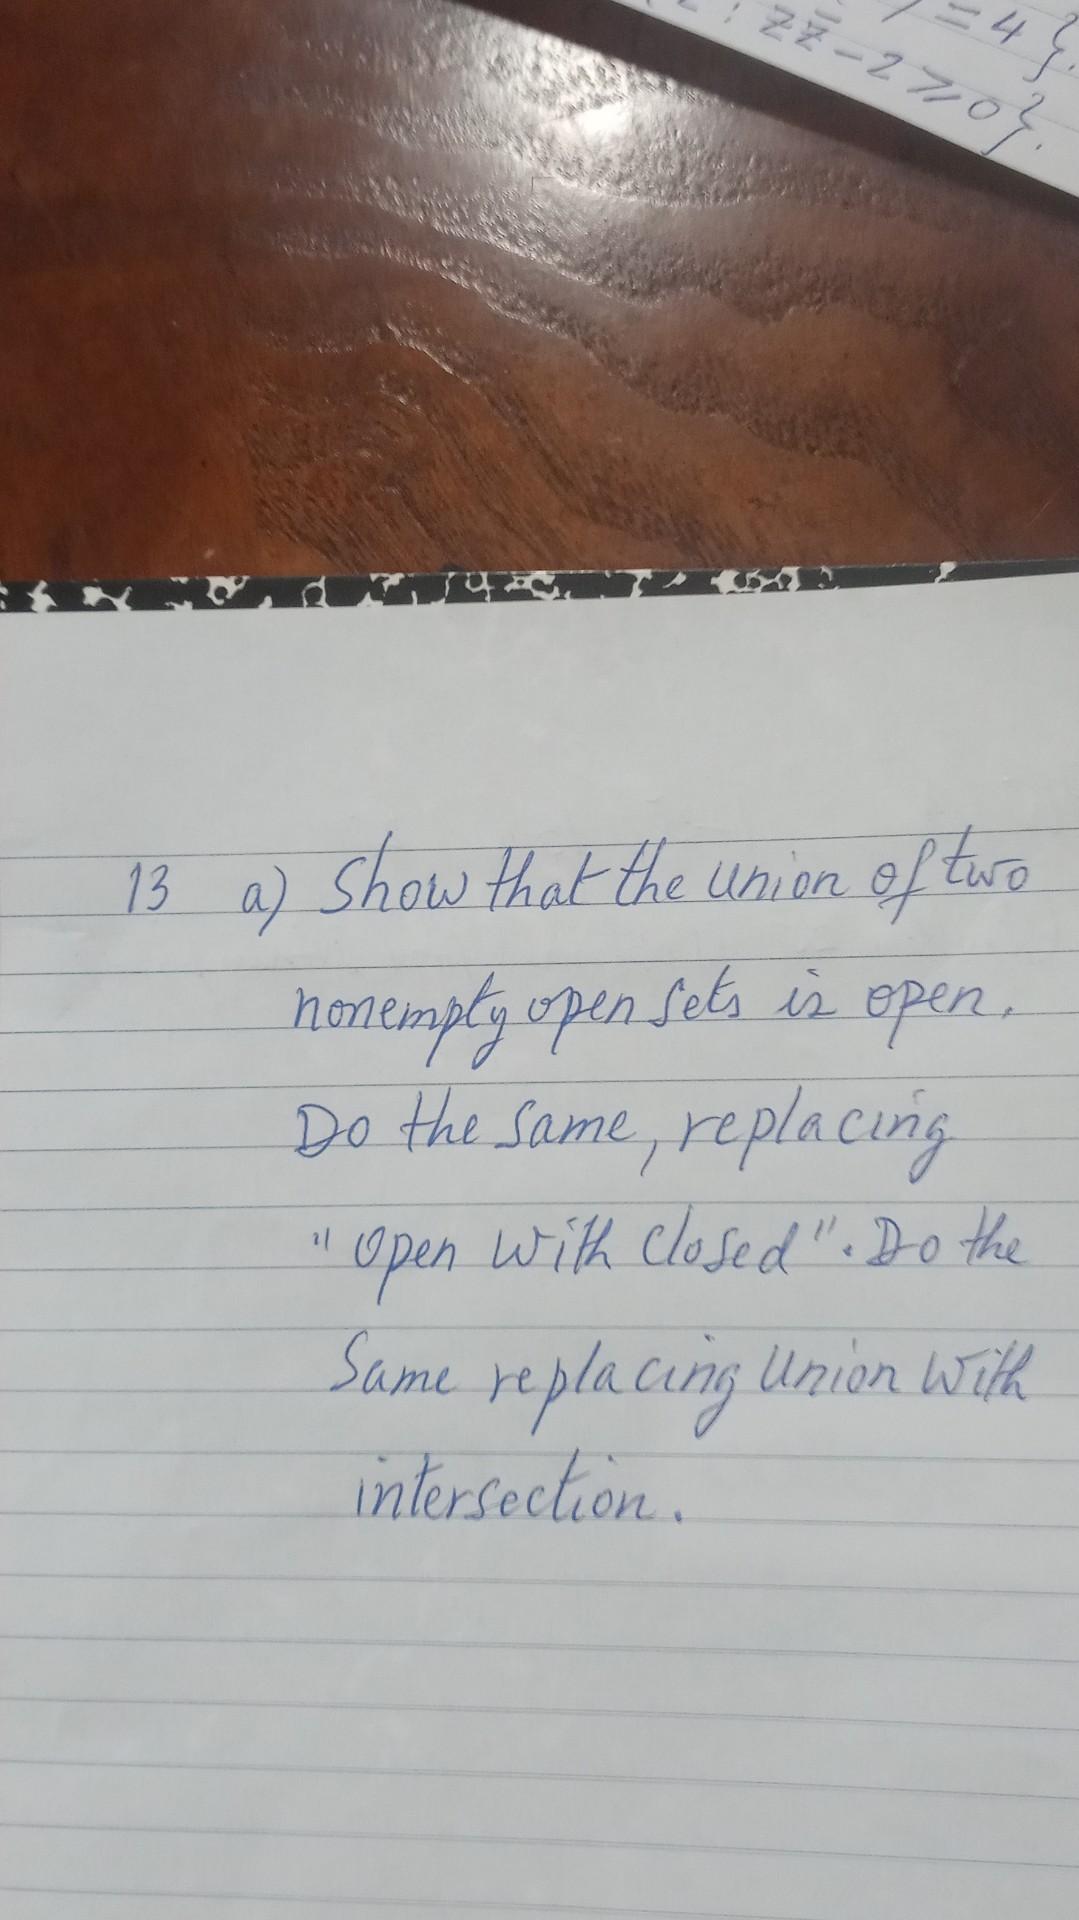 = 4 }.
: zz̄ - 2 ⩾ 0}.
13 a) Show that the union of two
nonempty open sets is open.
Do the same, replacing
"open with closed". Do the
Same replacing Union with
intersection.